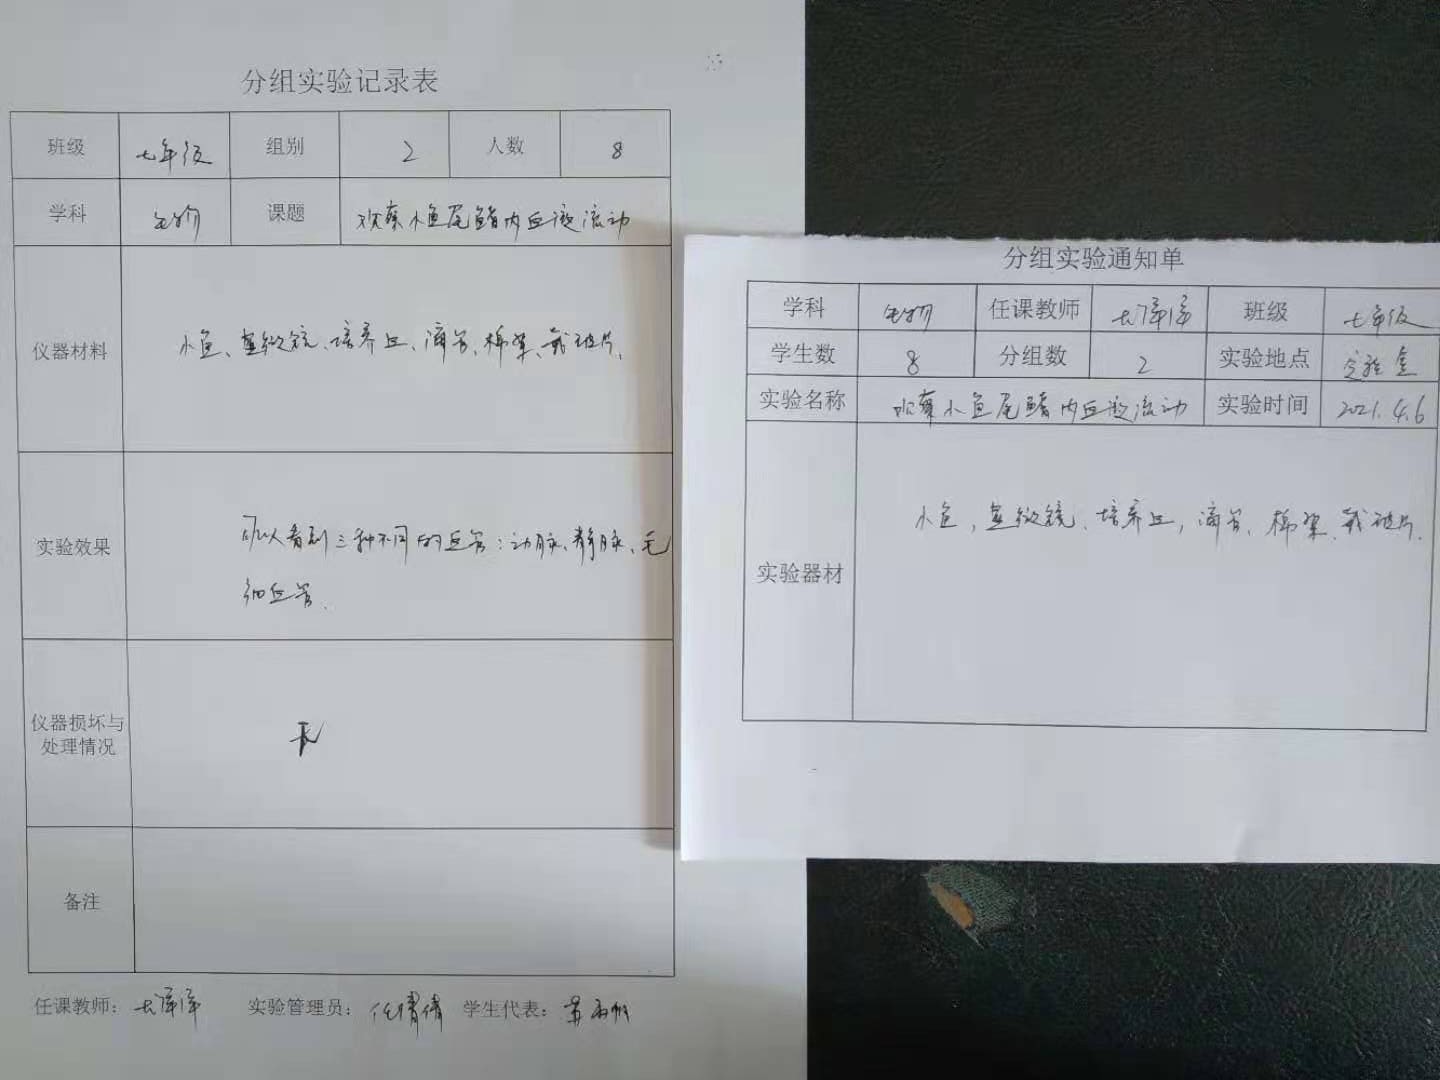 分组实验记录表
班级 七年级 组别 2 人数 8
学科 生物 课题 观察小鱼尾鳍内血液流动
仪器材料 小鱼、显微镜、培养皿、滴管、棉絮、载玻片、
实验效果 可以看到三种不同的血管:动脉、静脉、毛
细血管.
仪器损坏与
处理情况 无
备注
任课教师: 实验管理员: 任倩倩 学生代表:
分组实验通知单
学科 生物 任课教师 班级 七年级
学生数 8 分组数 2 实验地点 实验室
实验名称 观察小鱼尾鳍内血液流动 实验时间 2021.4.6
实验器材 小鱼,显微镜、培养皿,滴管、棉絮、载玻片.